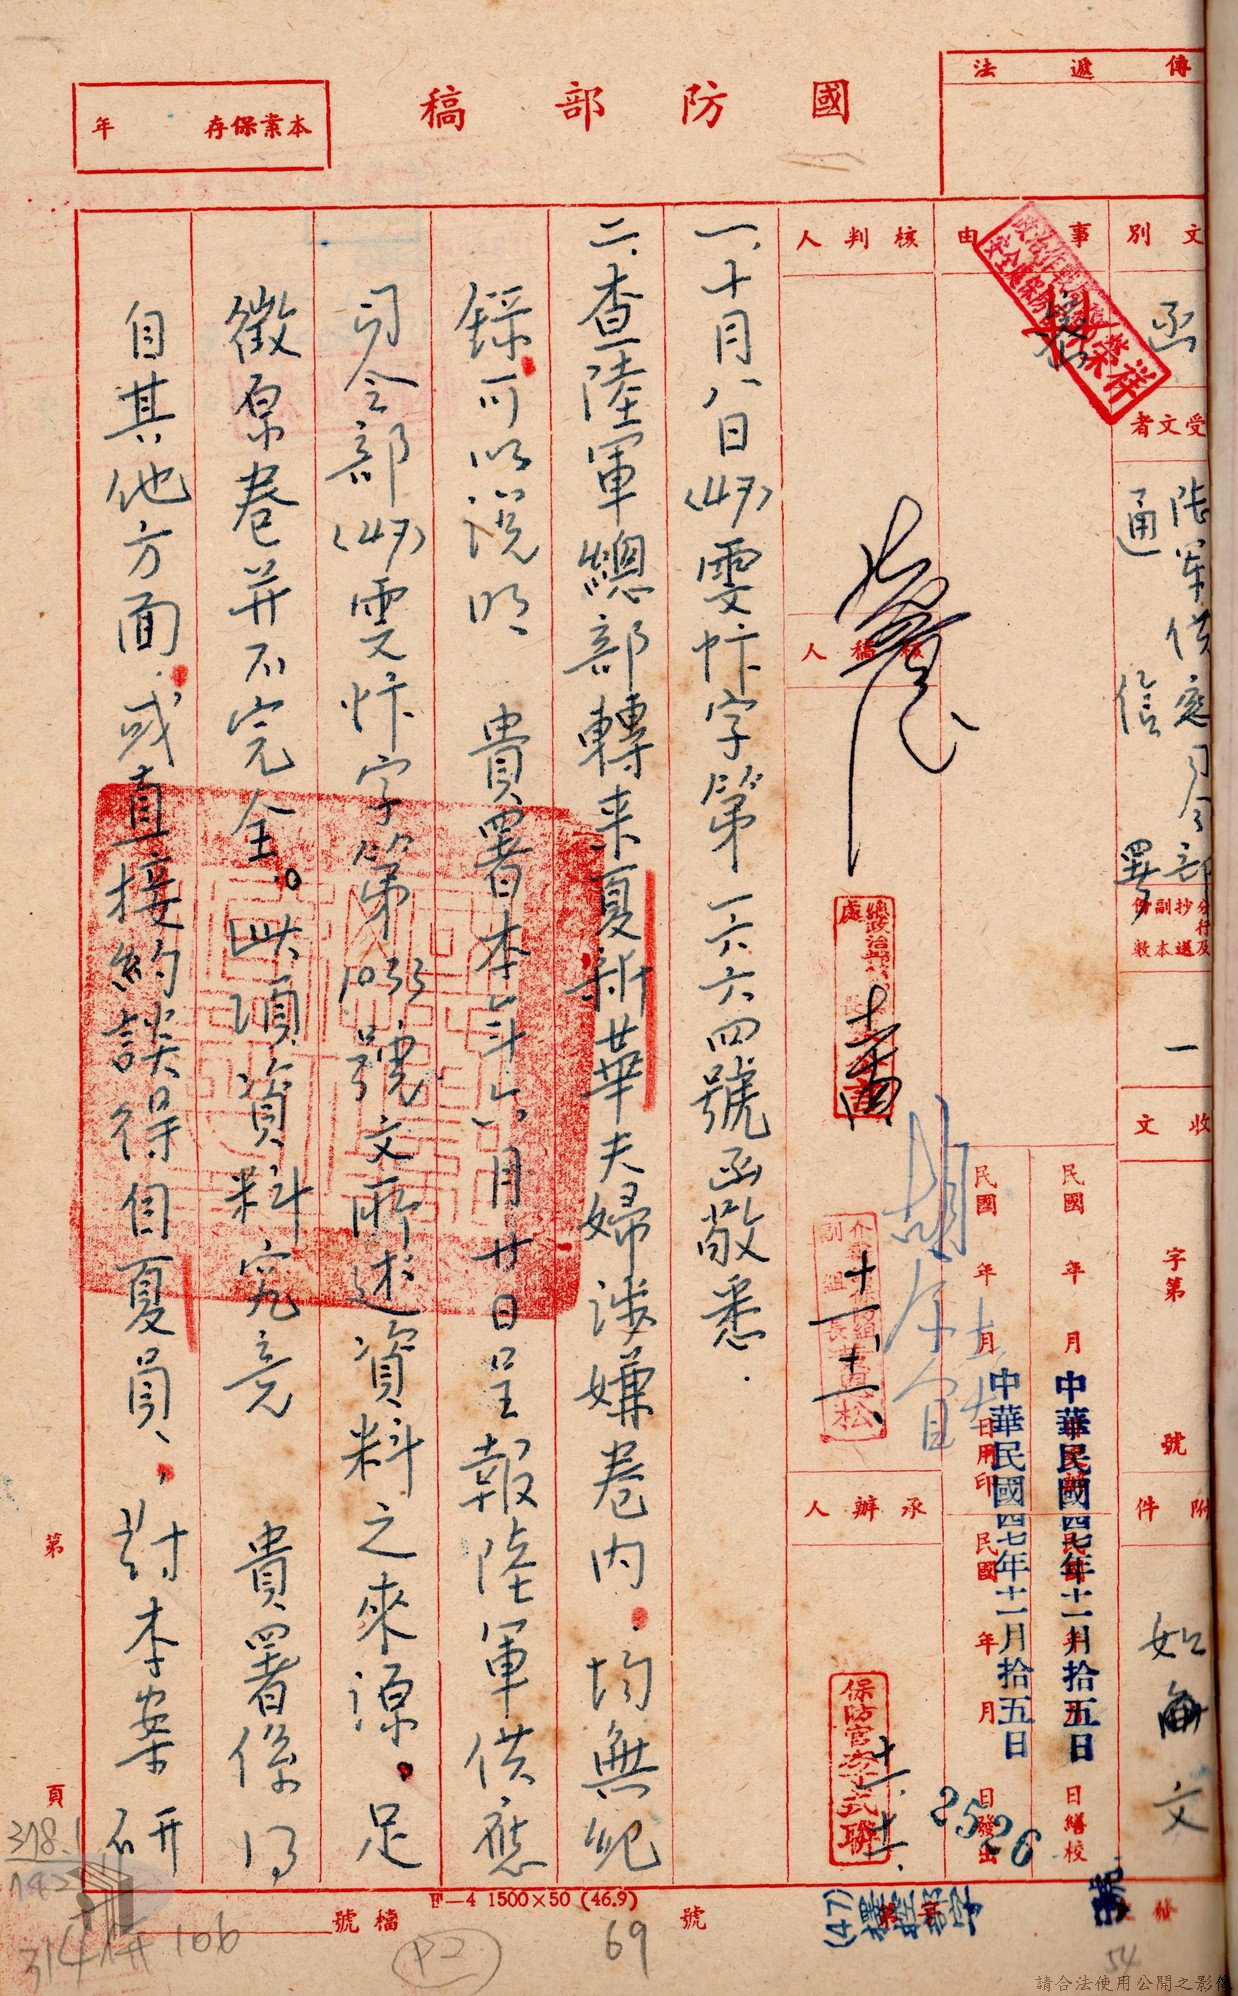 國防部稿
傳遞法
本案保存 年
文別
函
事由
受文者
陸軍供應司令部
通信署
分行及抄送副本份數
一
收文
字第
號
附件
如文
核判人
核稿人
承辦人
民國 年 月 日繕校
民國 年 月 日用印
民國 年 月 日發出
中華民國四七年十一月拾五日
中華民國四七年十一月拾五日
2526
一、十月八日(47)雯忭字第一六六四號函敬悉.
二、查陸軍總部轉來夏新華夫婦涉嫌卷內.均無紀
錄可以說明 貴署本年六月廿日呈報陸軍供應
司令部(47)雯忭字第1033號文所述資料之來源。足
徵原卷并不完全。此項資料究竟 貴署係得
自其他方面,或直接約談得自夏員,對本案研
第 頁
檔號 號
F—4 1500×50 (46.9)
(47)
318.1
142
314 106
P2
69
54
請合法使用公開之影像